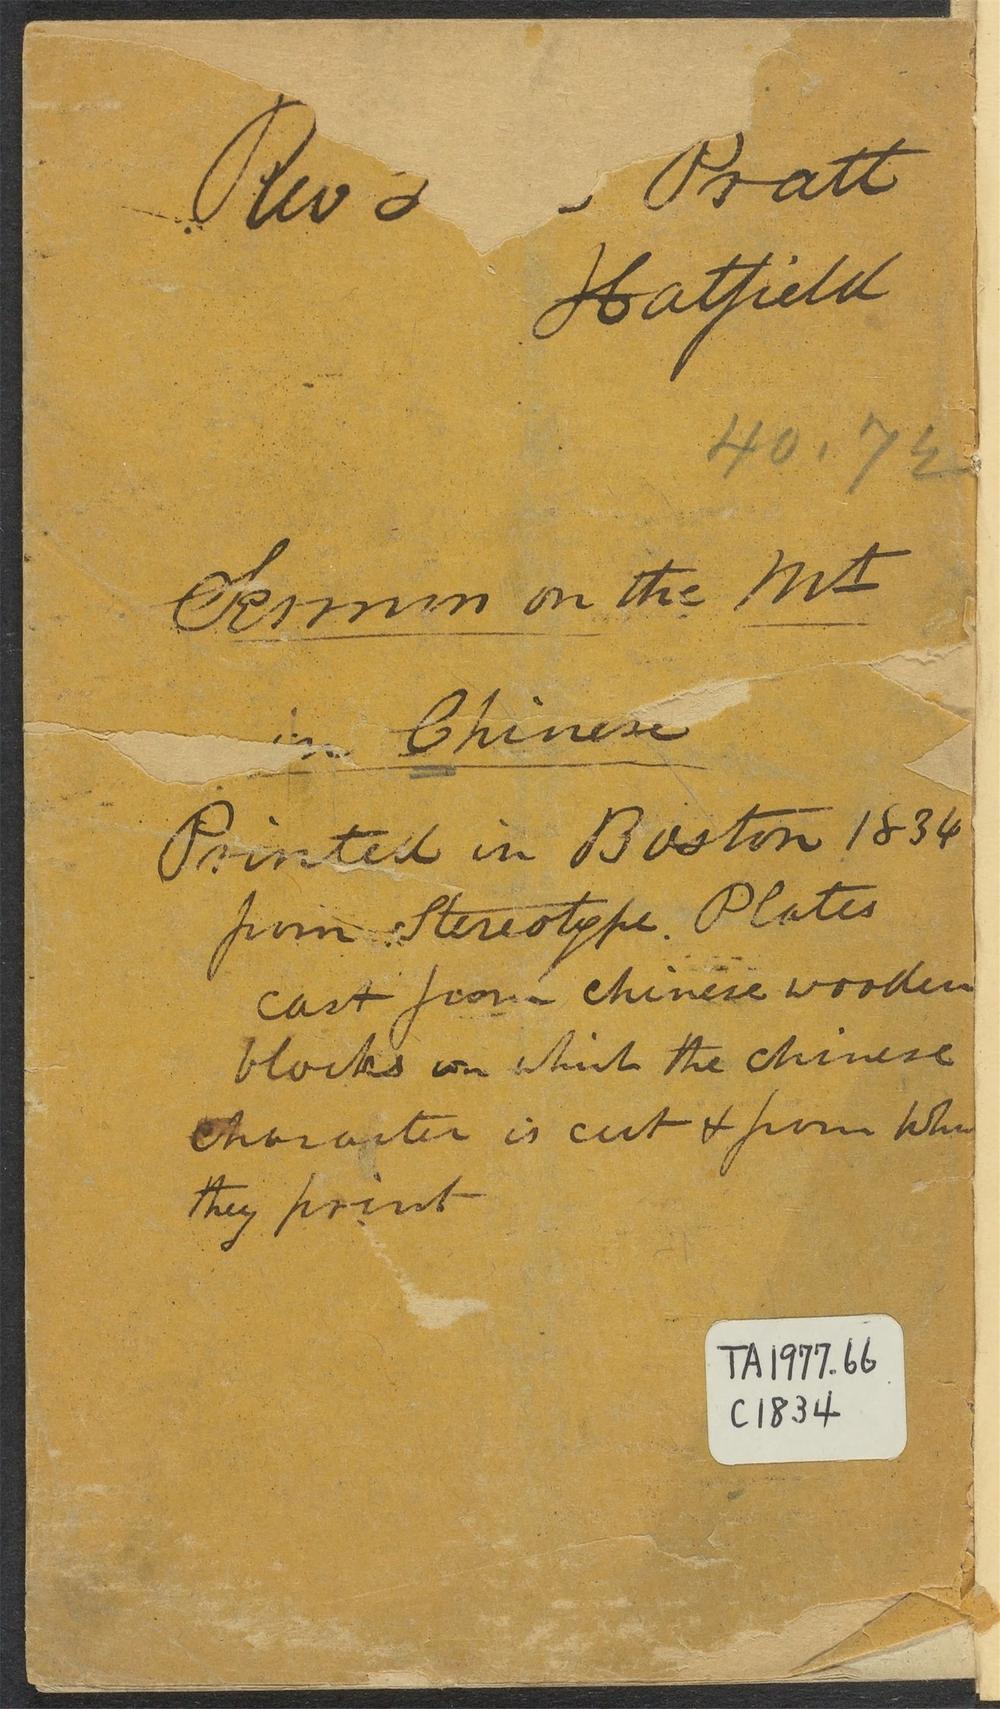 Rev d Pratt
Hatfield
40.7
Sermon on the Mt
in Chinese
Printed in Boston 1834
from Stereotype. Plates
cast from chinese wooden
blocks on which the chinese
character is cut & from
they print
TA1977.66
C1834